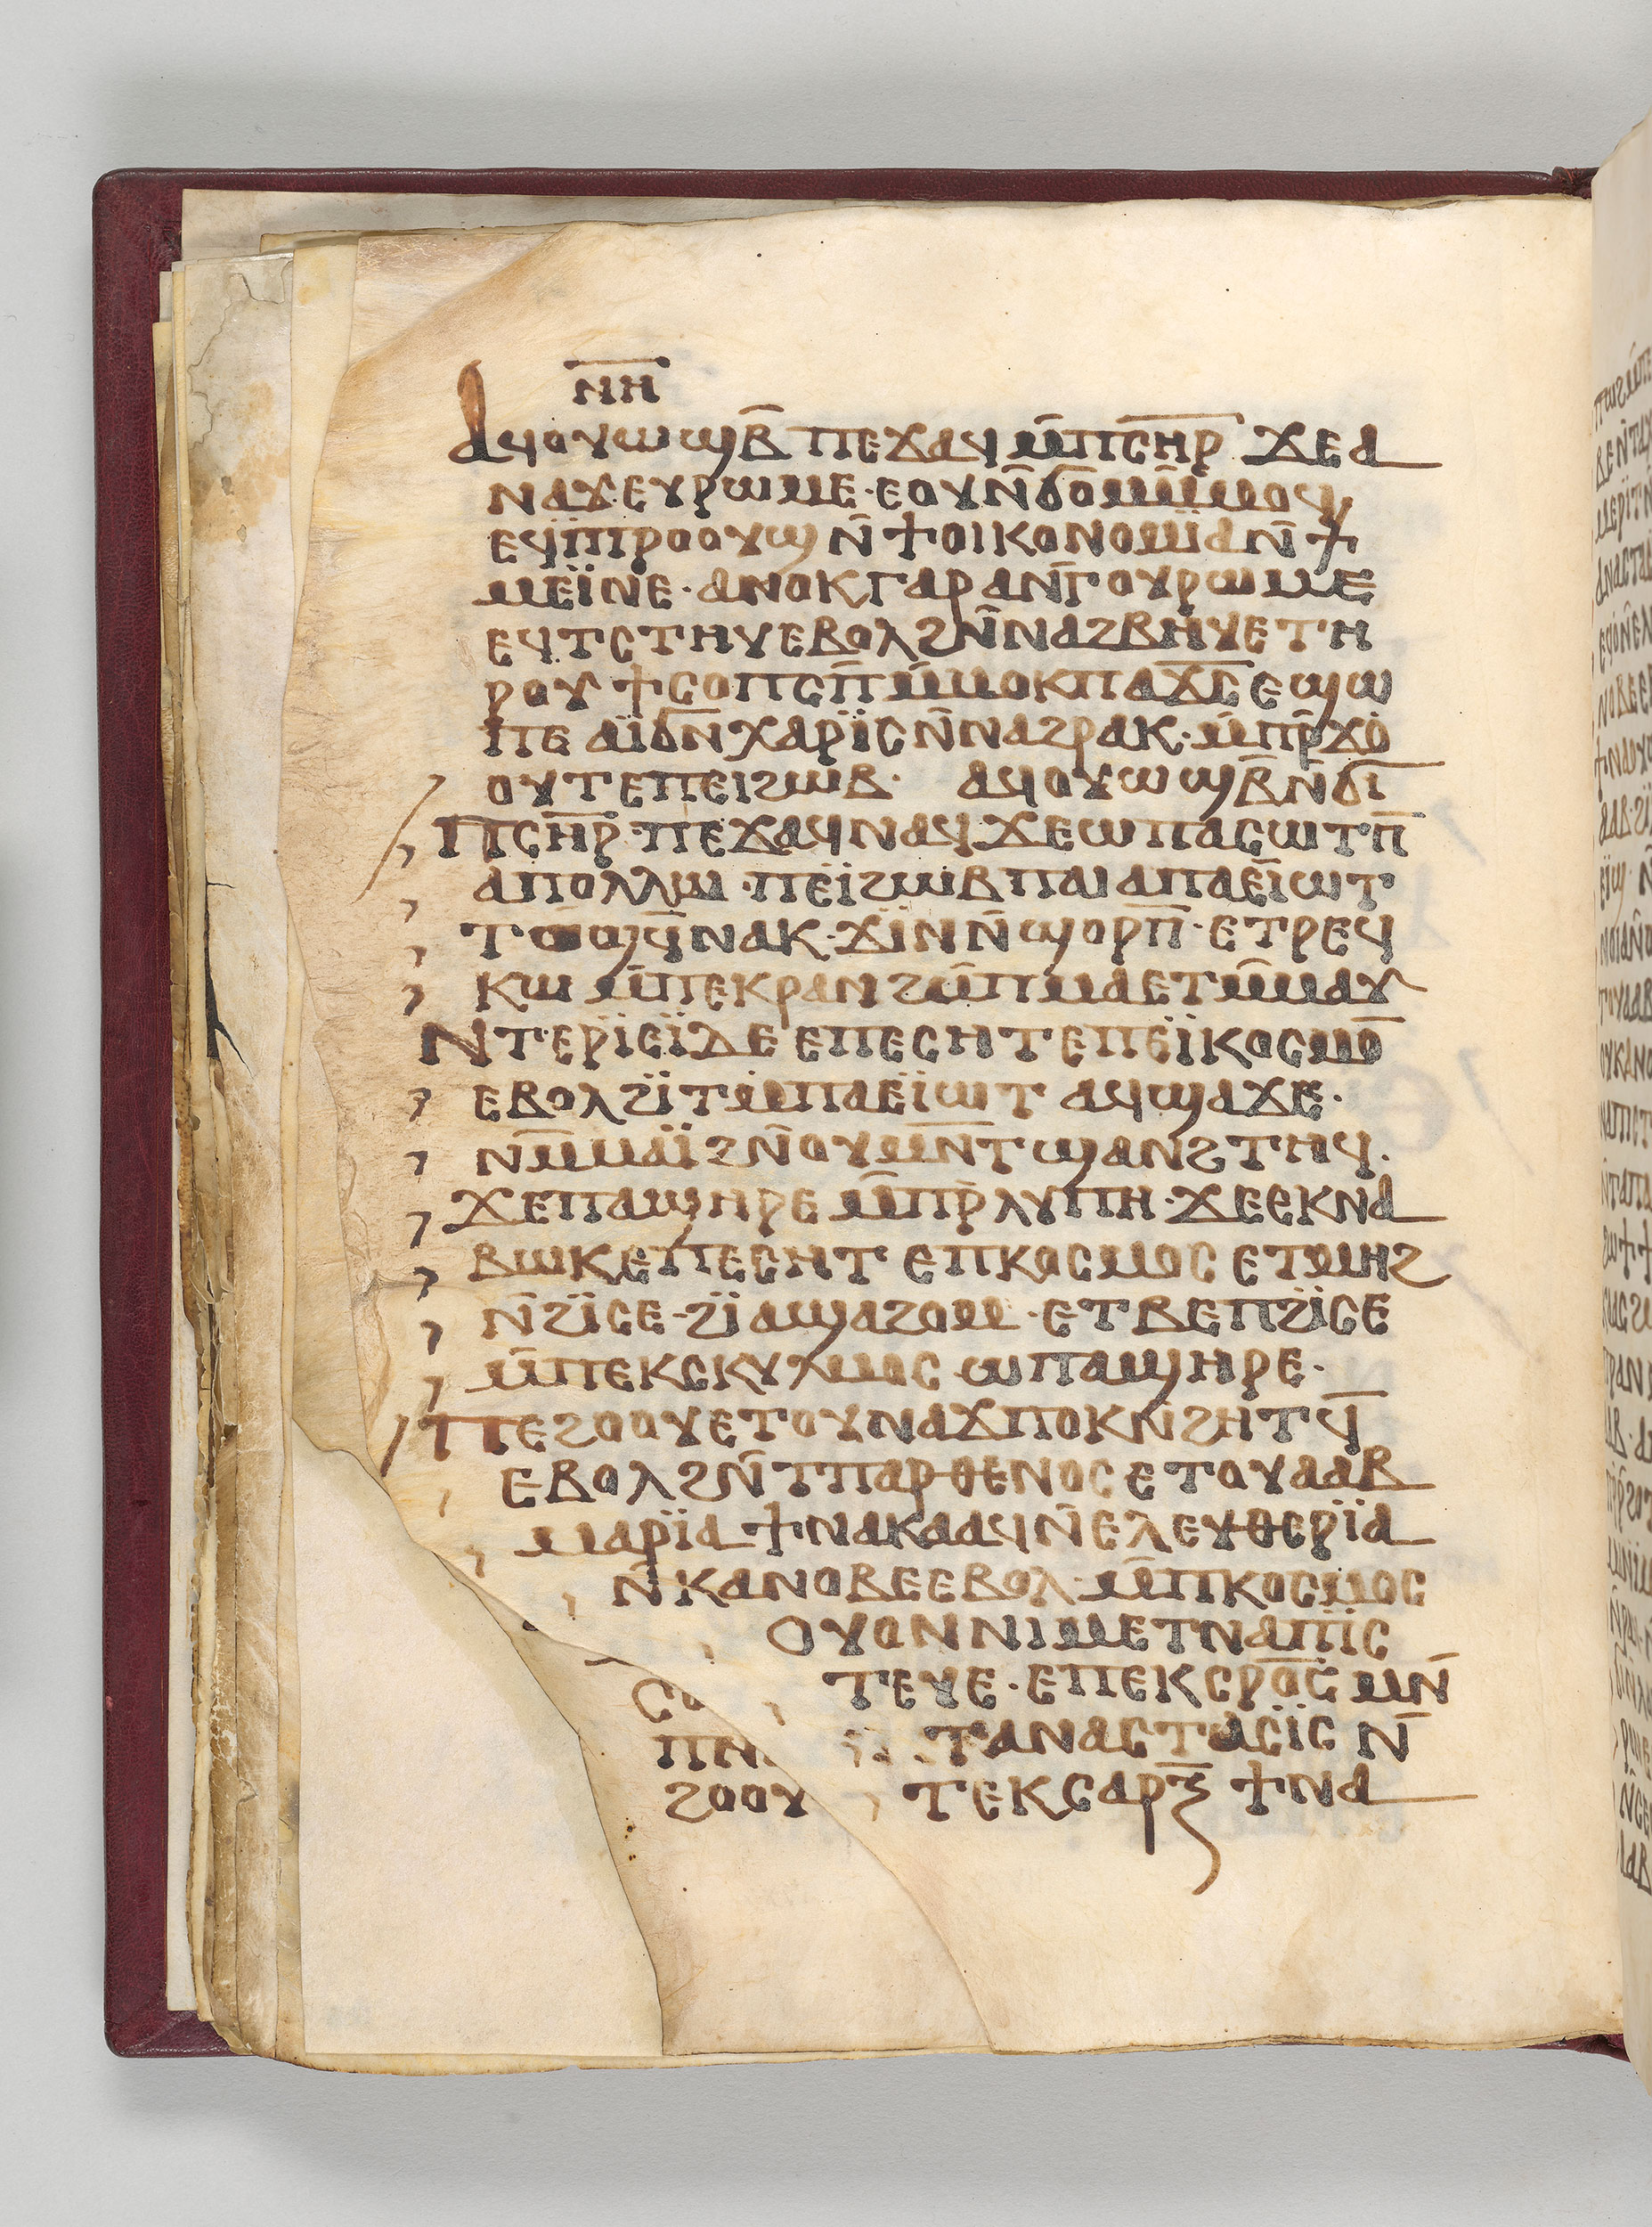 ⲛⲏ
ⲁϥⲟⲩⲱϣⲃ̄ ⲡⲉϫⲁϥ ⲙ̄ⲡⲥⲏ̄ⲣ̄ ϫⲉⲁ
ⲛⲁⲩ·ⲉⲩⲣⲱⲙⲉ·ⲉⲟⲩⲛ̄ϭⲟⲙⲙ̄ⲙⲟϥ
ⲉϥⲓ̈ⲡⲣⲟⲟⲩϣ ⲛ̄ϯⲟⲓⲕⲟⲛⲟⲙⲓ̈ⲁⲛ̄ϯ
ⲙⲉⲓ̈ⲛⲉ·ⲁⲛⲟⲕⲅⲁⲣⲁⲛⲅ̄ⲟⲩⲣⲱⲙⲉ
ⲉϥⲧⲥⲧⲏⲩⲉⲃⲟⲗϩⲛ̄ⲛⲁϩⲃⲏⲩⲉⲧⲏ
ⲣⲟⲩ ϯⲥⲟⲡⲥⲡ̄ ⲙ̄ⲙⲟⲕⲡⲁϫ̄ⲥ̄ ⲉϣⲱ
ⲡⲉ ⲁⲓ̈ϭⲛ̄ⲭⲁⲣⲓ̈ⲥ ⲛ̄ⲛⲁϩⲣⲁⲕ·ⲙ̄ⲡⲣ̄ϫⲟ
ⲟⲩⲧⲉⲡⲉⲓϩⲱⲃ· ⲁϥⲟⲩⲱϣⲃ̄ⲛ̄ϭⲓ
ⲡⲥⲏ̄ⲣ̄·ⲡⲉϫⲁϥⲛⲁϥ ϫⲉⲱⲡⲁⲥⲱⲧⲡ̄
ⲁⲡⲟⲗⲗⲱ·ⲡⲉⲓ̈ϩⲱⲃⲡⲁⲓⲁⲡⲁⲉⲓ̈ⲱⲧ
ⲧⲟϣϥ̄ⲛⲁⲕ·ϫⲓ̈ⲛⲛ̄ϣⲟⲣⲡ̄·ⲉⲧⲣⲉϥ
ⲕⲱ ⲙ̄ⲡⲉⲕⲣⲁⲛϩⲙ̄ⲡⲙⲁⲉⲧⲙ̄ⲙⲁⲩ
ⲛⲧ·ⲉⲣⲓ̈ⲉⲓ̈ⲇⲉ ⲉⲡⲉⲥⲏⲧ·ⲉⲡⲉⲓ̈ⲕⲟⲥⲙⲟ̄
ⲉⲃⲟⲗϩⲓ̈ⲧⲙⲡⲁⲉⲓ̈ⲱⲧ ⲁϥϣⲁϫⲉ·
ⲛⲙ̄ⲙⲁⲓ̈ ϩⲛ̄ⲟⲩⲙⲛ̄ⲧϣⲁⲛϩⲧⲏϥ·
ϫⲉⲡⲁϣⲏⲣⲉ ⲙ̄ⲡⲣ̄ⲗⲩⲡⲏ·ϫⲉⲉⲕⲛⲁ
ⲃⲱⲕⲉⲡⲉⲥⲏⲧ ⲉⲡⲕⲟⲥⲙⲟⲥ ⲉⲧⲙⲏϩ
ⲛ̄ϩⲓ̈ⲥⲉ·ϩⲓ̈ⲁϣⲁϩⲟⲙ·ⲉⲧⲃⲉⲡϩⲓ̈ⲥⲉ
ⲙ̄ⲡⲉⲕⲥⲕⲩⲗⲙⲟⲥ ⲱⲡⲁϣⲏⲣⲉ·
ⲡⲉϩⲟⲟⲩⲉⲧⲟⲩⲛⲁϫⲡⲟⲕⲛ̄ϩⲏⲧϥ̄
ⲉⲃⲟⲗϩⲛ̄ⲧⲡⲁⲣⲑⲉⲛⲟⲥ ⲉⲧⲟⲩⲁⲁⲃ
ⲙⲁⲣⲓ̈ⲁ ϯⲛⲁⲕⲁⲁϥⲛ̄ⲉⲗⲉⲩⲑⲉⲣⲓ̈ⲁ
ⲛ̄ⲕⲁⲛⲟⲃⲉⲉⲃⲟⲗ·ⲙ̄ⲡⲕⲟⲥⲙⲟⲥ
ⲟⲩⲟⲛⲛⲓⲙⲉⲧⲛⲁⲡⲓ̈ⲥ
ⲧⲉⲩⲉ·ⲉⲡⲉⲕⲥⲣ̄ⲟ̄ⲥ̄ ⲙⲛ̄
ⲧⲁⲛⲁⲥⲧⲁⲥⲓ̈ⲥ ⲛ̄
ⲧⲉⲕⲥⲁⲣⲝ̄ ϯⲛⲁ
ⲥⲟ
ⲡⲛ
ϩⲟⲟⲩ